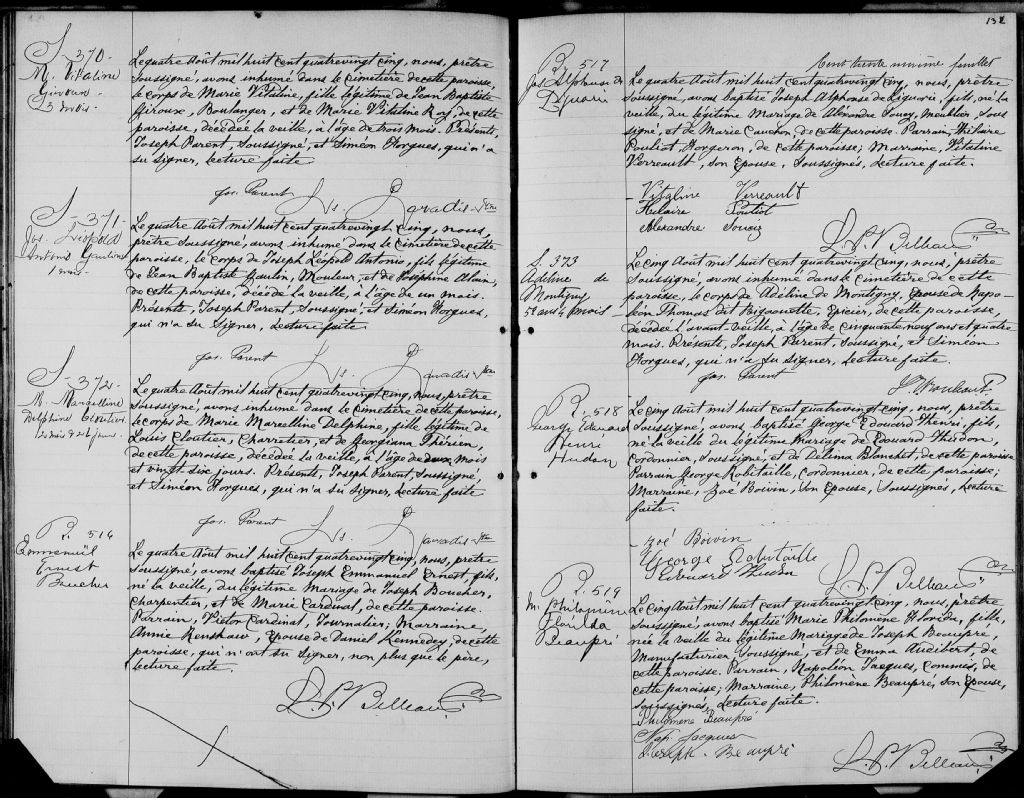 S. 370.
M. Vitaline
Giroux
3 mois.
Le quatre Août mil huit cent quatrevingt cinq, nous, prêtre
Soussigné, avons inhumé dans le cimetière de cette paroisse,
le corps de Marie Vitalie, fille légitime de Jean Baptiste
Giroux, Boulanger, et de Marie Vitaline Roy, de cette
paroisse, décédée la veille, à l'âge de trois mois. Présents,
Joseph Parent, Soussigné, et Siméon Horgues, qui n'a
su signer, lecture faite.
Jos. Parent Ls. Paradis Ptre
S. 371.
Jos. Léopold
Antonio Gaulin
1 mois.
Le quatre Août mil huit cent quatrevingt, cinq, nous,
prêtre Soussigné, avons inhumé dans le cimetière de cette
paroisse, le corps de Joseph Léopold Antonio, fils légitime
de Jean Baptiste Gaulin, Mouleur, et de Josephine Alain,
de cette paroisse, décédé la veille, à l'âge de un mois.
Présents, Joseph Parent, Soussigné, et Siméon Horgues,
qui n'a su signer, Lecture faite.
Jos. Parent Ls. Paradis Ptre
S. 372.
M. Marcelline
Delphine Cloutier
2 mois & 26 jours.
Le quatre Août mil huit cent quatrevingt cinq, nous, prêtre
Soussigné, avons inhumé dans le cimetière de cette paroisse,
le corps de Marie Marcelline Delphine, fille légitime de
Louis Cloutier, Charretier, et de Georgiana Thérien,
de cette paroisse, décédée la veille, à l'âge de deux mois
et vingt six jours. Présents, Joseph Parent, Soussigné,
et Siméon Horgues, qui n'a su signer, Lecture faite
Jos. Parent Ls. Paradis Ptre
B. 516
Emmenuël
Ernest
Boucher
Le quatre Août mil huit cent quatrevingt cinq, nous, prêtre
Soussigné, avons baptisé Joseph Emmanuel Ernest, fils,
né la veille, du légitime Mariage de Joseph Boucher,
charpentier, et de Marie Cardinal, de cette paroisse.
Parrain, Victor Cardinal, Journalier; Marraine,
Annie Renshaw, Epouse de Daniel Kennedey, de cette
paroisse, qui n'ont su signer, non plus que le père,
Lecture faite.
L. P. V Belleau
132
Cent trente unième feuillet
B. 517
Jos. Alphonse de
Liguori
Le quatre Août mil huit cent quatrevingt cinq, nous, prêtre
soussigné, avons baptisé Joseph Alphonse de Liguorie, fils, né la
veille, du legitime Mariage de Alexandre Soucy, Meublier, Sous
signé, et de Marie Cauchon, de cette paroisse. Parrain, Hilaire
Pouliot Forgeron, de cette paroisse; Marraine, Vitaline
Verreault, son Epouse, Soussignés, Lecture faite.
Vitaline Verreault
Helaire Pouliot
Alexandre Soucis
L. P. V Belleau
S. 373
Adéline de
Montigny
59 ans 4 mois
Le cinq Août mil huit cent quatrevingt cinq, nous, prêtre
Soussigné, avons inhumé dans le Cimetière de cette
paroisse, le corps de Adéline de Montigny, Epouse de Napo-
léon Thomas dit Bigaouette, Epicier, de cette paroisse,
décédée l'avant-veille, à l'âge de cinquante neuf ans et quatre
mois. Présents, Joseph Parent, Soussigné, et Siméon
Horgues, qui n'a su signer, Lecture faite.
Jos. Parent
B. 518
George Edouard
Henri
Hudon
Le cinq Août mil huit cent quatrevingt cinq, nous, prêtre
soussigné, avons baptisé George Edouard Henri, fils,
né la veille du légitime Mariage de Edouard Hudon,
Cordonnier, Soussigné, et de Delima Blanchet de cette paroisse
Parrain George Robitaille, cordonnier, de cette paroisse;
Marraine, Zoé Boivin, Son Epouse, Soussignés, Lecture
faite.
Zoé Boivin
George Robitaille
Edouard Hudon
L. P. V Belleau
B. 519
M. Philomène
Florilda
Beaupré
Le cinq Août mil huit cent quatrevingt cinq, nous, prêtre
soussigné, avons baptisé Marie Philomène Florida, fille,
née la veille du légitime Mariage de Joseph Beaupré,
Manufacturier, Soussigné, et de Emma Audibert, de
cette paroisse. Parrain, Napoléon Jacques, Commis, de
cette paroisse; Marraine, Philomène Beaupré, son Epouse,
soussignés, Lecture faite.
Philomène Beaupré
Nap. Jacques
Joseph Beaupré
L. P. V Belleau